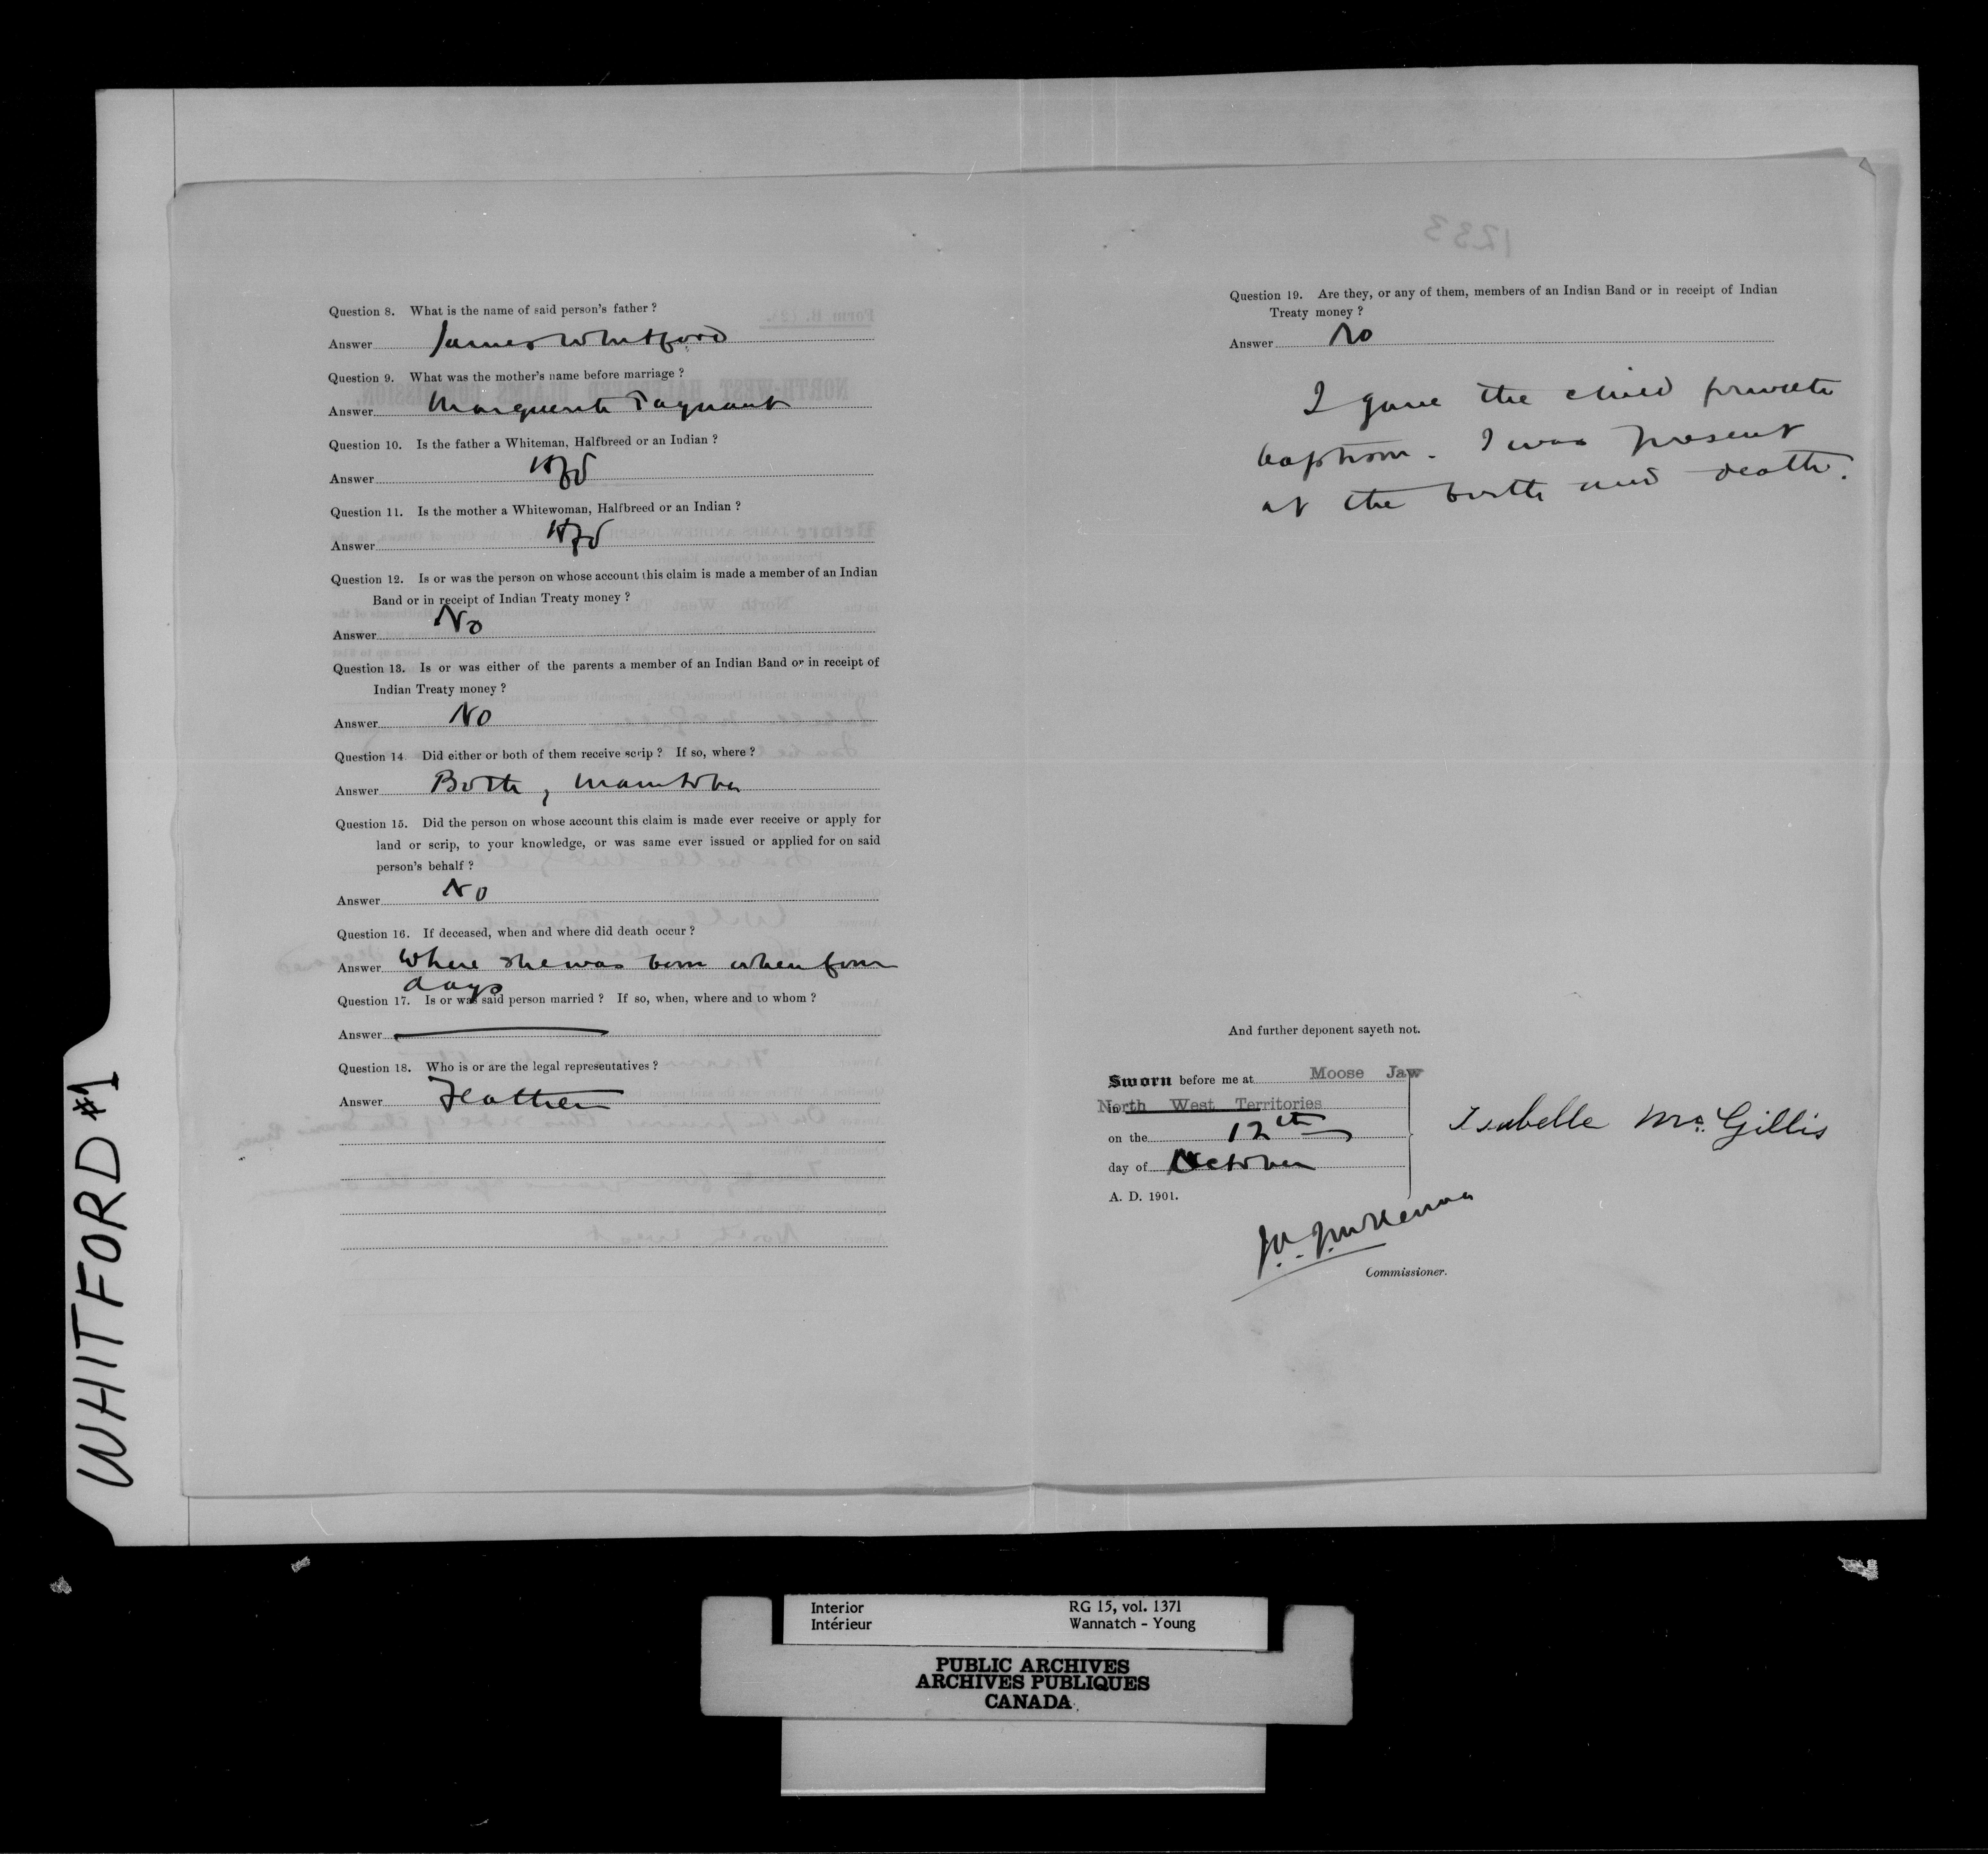 WHITFORD #1
Question 8. What is the name of said person's father ?
Answer James Whitford
Question 9. What was the mother's name before marriage ?
Answer Marguerite
Question 10. Is the father a Whiteman, Halfbreed or an Indian ?
Answer Hfbd
Question 11. Is the mother a Whitewoman, Halfbreed or an Indian ?
Answer Hfbd
Question 12. Is or was the person on whose account this claim is made a member of an Indian
Band or in receipt of Indian Treaty money ?
Answer No
Question 13. Is or was either of the parents a member of an Indian Band or in receipt of
Indian Treaty money ?
Answer No
Question 14. Did either or both of them receive scrip ? If so, where ?
Answer Both, Manitoba
Question 15. Did the person on whose account this claim is made ever receive or apply for
land or scrip, to your knowledge, or was same ever issued or applied for on said
person's behalf ?
Answer No
Question 16. If deceased, when and where did death occur ?
Answer Where she was born when four
days
Question 17. Is or was said person married ? If so, when, where and to whom ?
Answer
Question 18. Who is or are the legal representatives ?
Answer Father
1233
Question 19. Are they, or any of them, members of an Indian Band or in receipt of Indian
Treaty money ?
Answer No
I gave the child private
baptism. I was present
at the birth and death.
And further deponent sayeth not.
Sworn before me at Moose Jaw
in North West Territories
on the 12th
day of October
A. D. 1901.
Isabelle Mc Gillis
J.A.J. McKenna
Commissioner.
Interior RG 15, vol. 1371
Intérieur Wannatch - Young
PUBLIC ARCHIVES
ARCHIVES PUBLIQUES
CANADA